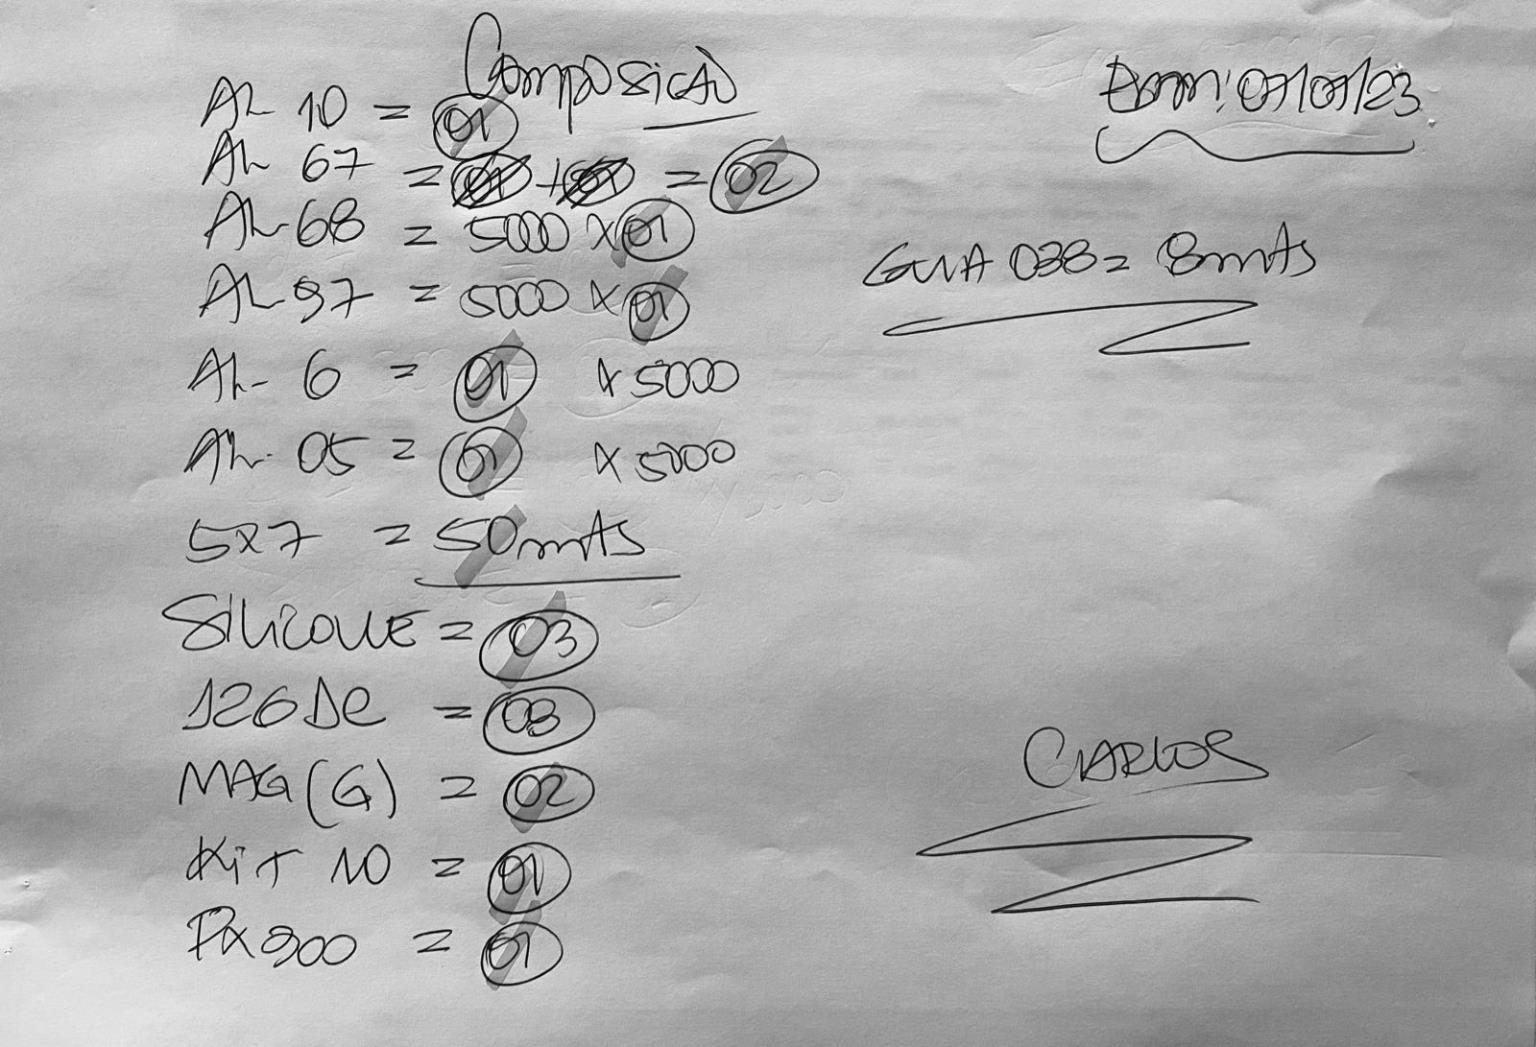 Composição
Bom: 07/07/23
AL 10 = 01
AL 67 = 01 + 01 = 02
AL-68 = 5000 x 01
GUIA 038 = 8mts
AL-97 = 5000 x 01
AL- 6 = 01 x 5000
AL- 05 = 01 x 5000
5x7 = 50mts
SILICONE = 03
126 DC = 03
MAG (G) = 02
CARLOS
Kit 10 = 01
PX 900 = 01